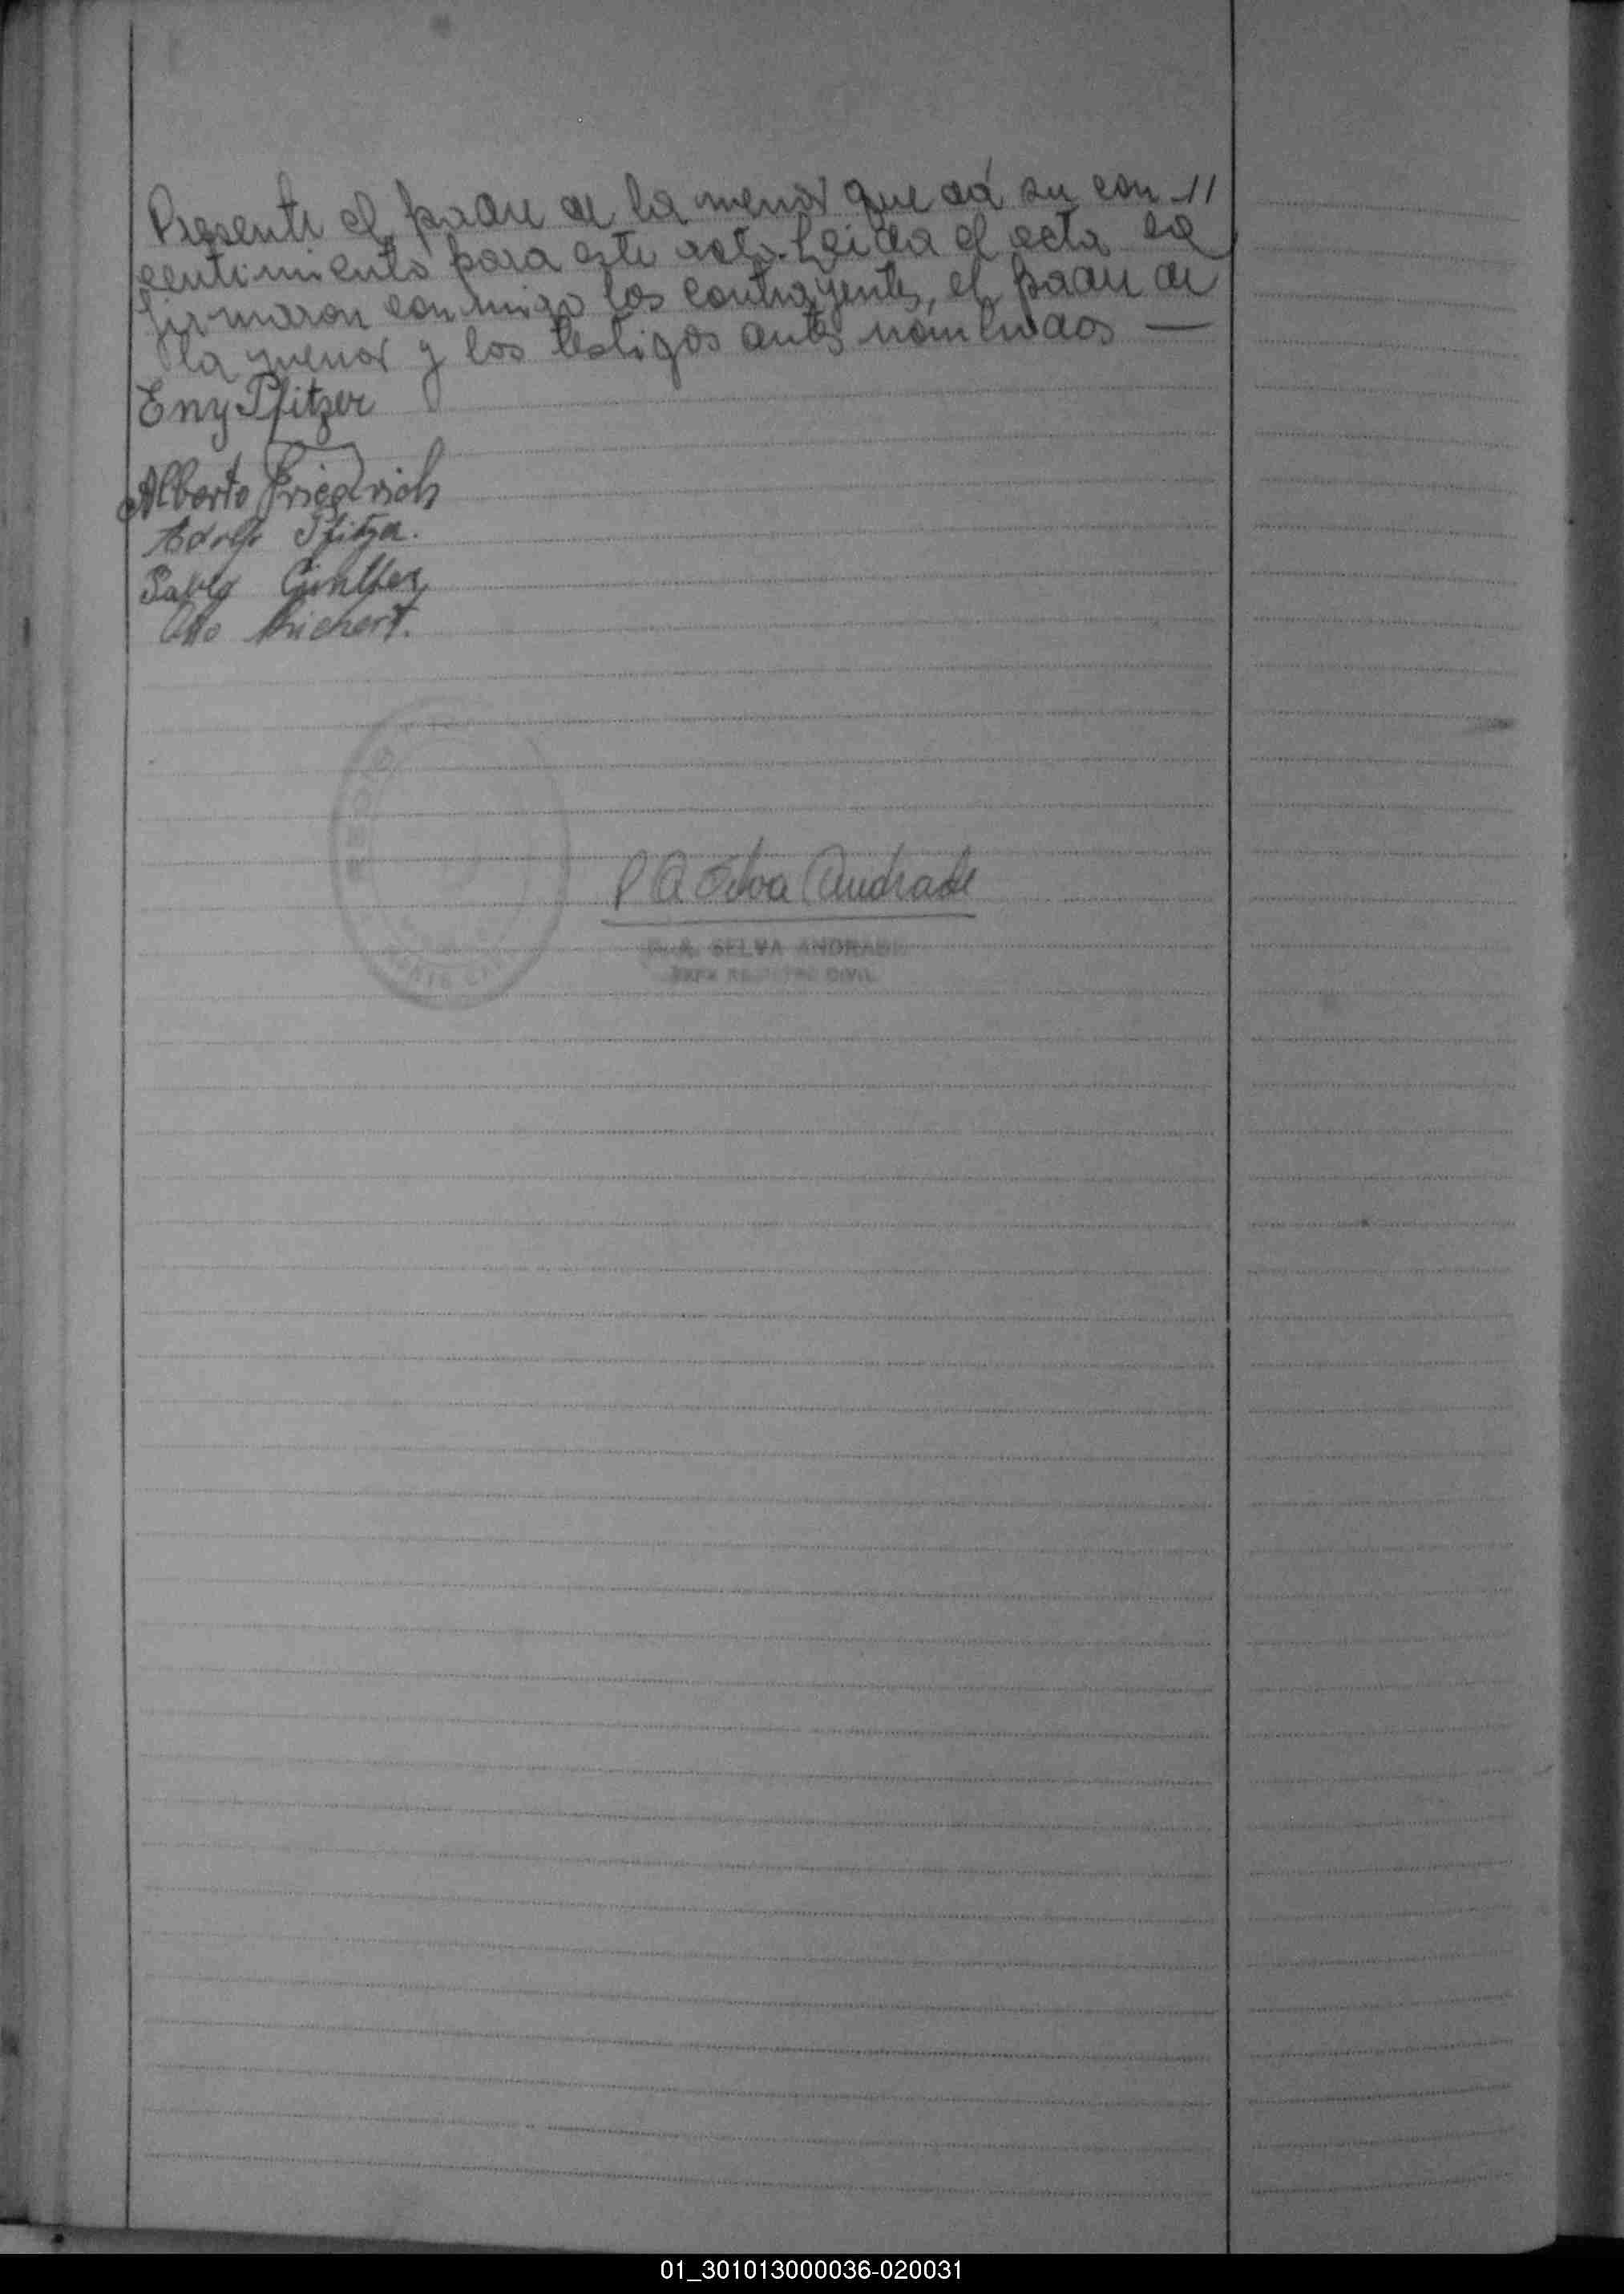 Presente el padre de la menor que dá su con //
sentimiento para este acto. Leida el acta la
firmaron conmigo los contrayentes, el padre de
la menor y los testigos antes nombrados —
Eny Pfitzer
Alberto Friedrich
Adolfo Pfitzer.
Pablo Günther
Otto Richert.
P A Selva Andrade
P. A. SELVA ANDRADE
JEFE REGISTRO CIVIL
01_301013000036-020031